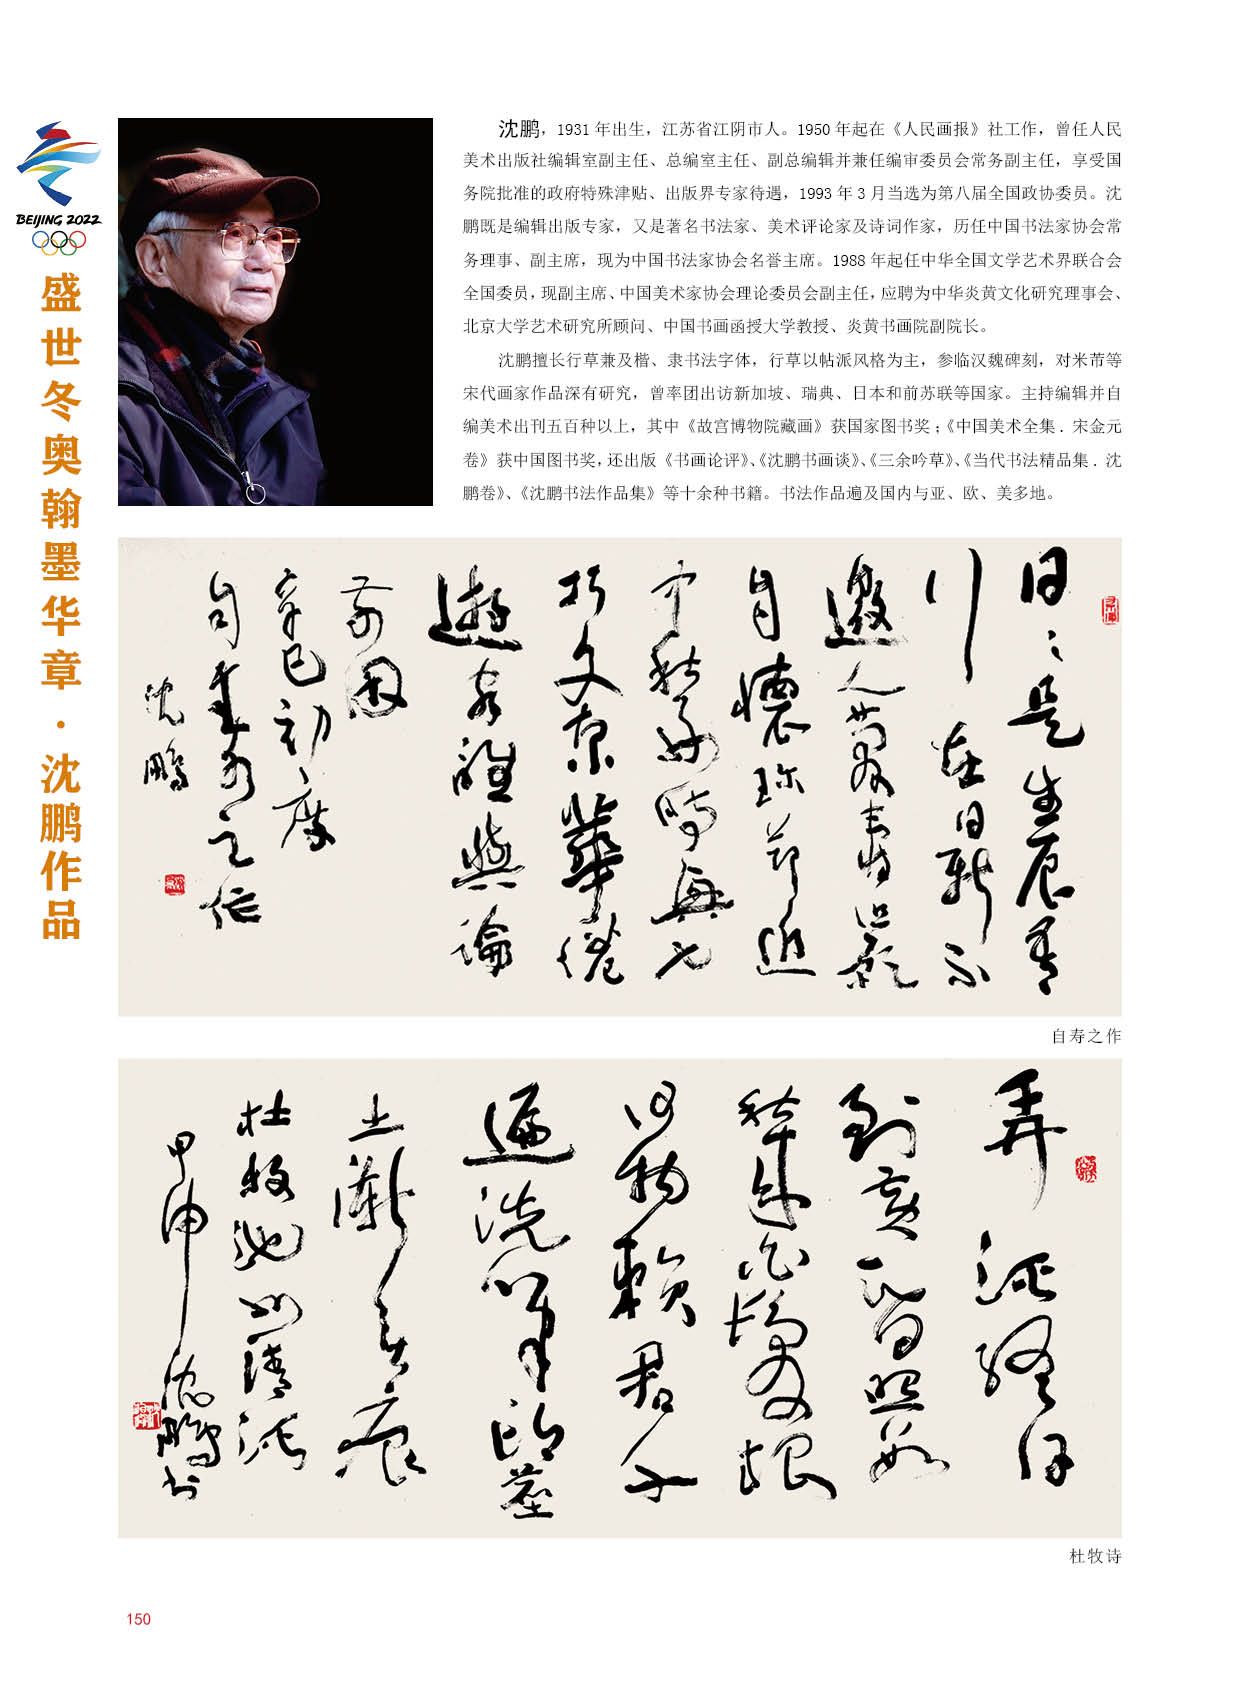 BEIJING 2022
盛世冬奥翰墨华章·沈鹏作品
沈鹏，1931 年出生，江苏省江阴市人。1950 年起在《人民画报》社工作，曾任人民
美术出版社编辑室副主任、总编室主任、副总编辑并兼任编审委员会常务副主任，享受国
务院批准的政府特殊津贴、出版界专家待遇，1993 年 3 月当选为第八届全国政协委员。沈
鹏既是编辑出版专家，又是著名书法家、美术评论家及诗词作家，历任中国书法家协会常
务理事、副主席，现为中国书法家协会名誉主席。1988 年起任中华全国文学艺术界联合会
全国委员，现副主席、中国美术家协会理论委员会副主任，应聘为中华炎黄文化研究理事会、
北京大学艺术研究所顾问、中国书画函授大学教授、炎黄书画院副院长。
沈鹏擅长行草兼及楷、隶书法字体，行草以帖派风格为主，参临汉魏碑刻，对米芾等
宋代画家作品深有研究，曾率团出访新加坡、瑞典、日本和前苏联等国家。主持编辑并自
编美术出刊五百种以上，其中《故宫博物院藏画》获国家图书奖；《中国美术全集．宋金元
卷》获中国图书奖，还出版《书画论评》、《沈鹏书画谈》、《三余吟草》、《当代书法精品集．沈
鹏卷》、《沈鹏书法作品集》等十余种书籍。书法作品遍及国内与亚、欧、美多地。
日〻是生辰
川在日新不
邀人
自懷珍
中秋
巧文
遊客誰與論
辛巳初度
自壽之作
沈鵬
自寿之作
弄溪終日
到黄昏照數
秋來白髮根
何物賴君千
遍洗筆頭塵
土漸無痕
杜牧池州清溪
甲申沈鵬书
杜牧诗
150